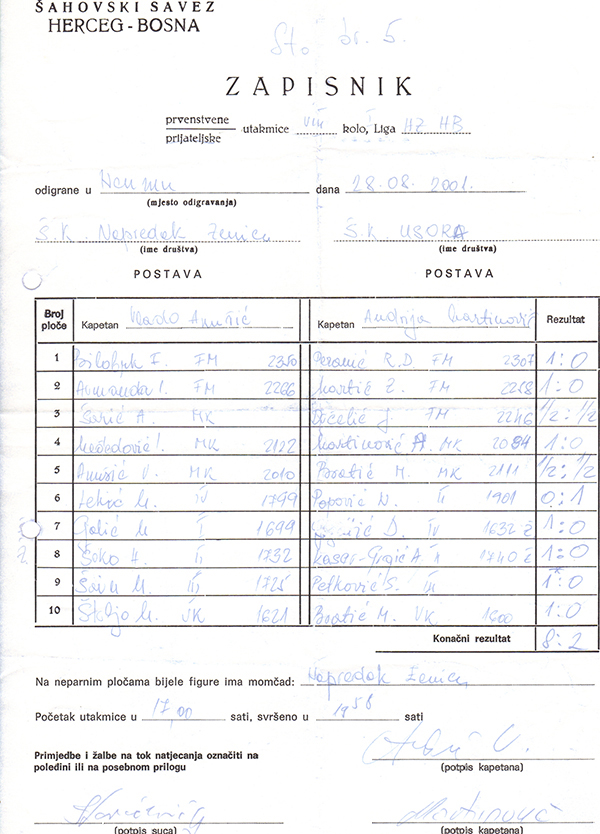 ŠAHOVSKI SAVEZ
HERCEG - BOSNA
Sto br. 5.
ZAPISNIK
prvenstvene
prijateljske
utakmice VIII kolo, Liga HZ HB
odigrane u Neumu dana 28.08. 2001.
(mjesto odigravanja)
Š.K. Napredak Zenica Š.K. USORA
(ime društva) (ime društva)
POSTAVA POSTAVA
Broj ploče Kapetan Vlado Kapetan Andrija Martinović Rezultat
1 FM 2350 R.D. FM 2307 1:0
2 FM 2266 Martić Ž. FM 2258 1:0
3 Šarić A. MK J. FM 2246 1/2 : 1/2
4 MK 2122 Martinović A. MK 2084 1:0
5 V. MK 2010 Bratić M. MK 2111 1/2 : 1/2
6 M. IV 1799 Popović N. II 1901 0:1
7 Golić M I 1699 D. IV 1632 ž 1:0
8 Šoko H. II 1732 1740 ž 1:0
9 M. III 1725 Petković S. III 1:0
10 M. VK 1621 Bratić M. VK 1600 1:0
Konačni rezultat 8:2
Na neparnim pločama bijele figure ima momčad: Napredak Zenica
Početak utakmice u 17,00 sati, svršeno u 19 58 sati
Primjedbe i žalbe na tok natjecanja označiti na
poleđini ili na posebnom prilogu
(potpis kapetana)
Martinović
(potpis suca) (potpis kapetana)